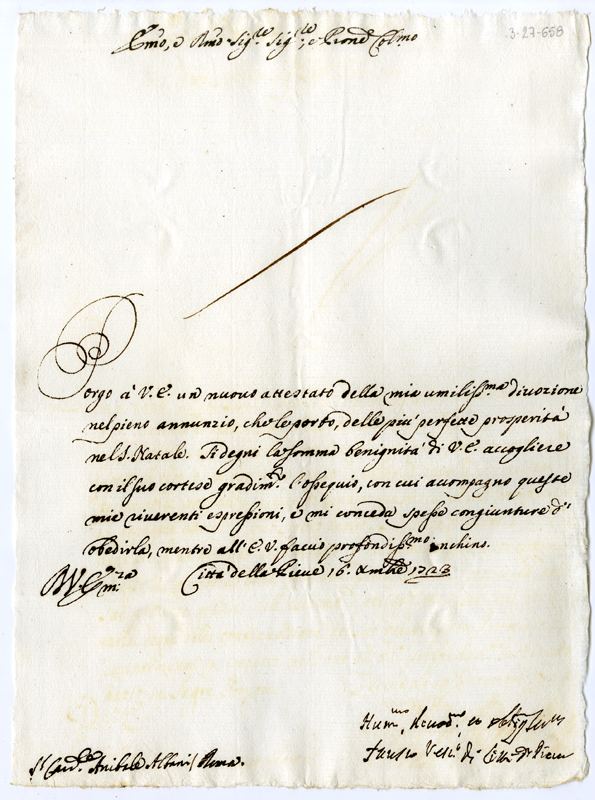 3-27-658
Emo, e Rmo Sig.re Sig.re, e Prone Colmo
Porgo à V. E. un nuovo attestato della mia umiliss.ma divozione
nel pieno annunzio, che le porto, delle più perfette prosperità
nel S. Natale. Si degni la somma benignità di V. E. accogliere
con il suo cortese gradim.to l'ossequio, con cui acompagno queste
mie riverenti espressioni, e mi conceda spesse congiunture d'
obedirla, mentre all' E. V. faccio profondiss.mo inchino.
Città della Pieve 16. Xmbre 1723
Hum.mo Devod.mo et
Fausto Vesc.o di Città d. Pieve
S.r Card.le Anibale Albani / Roma.